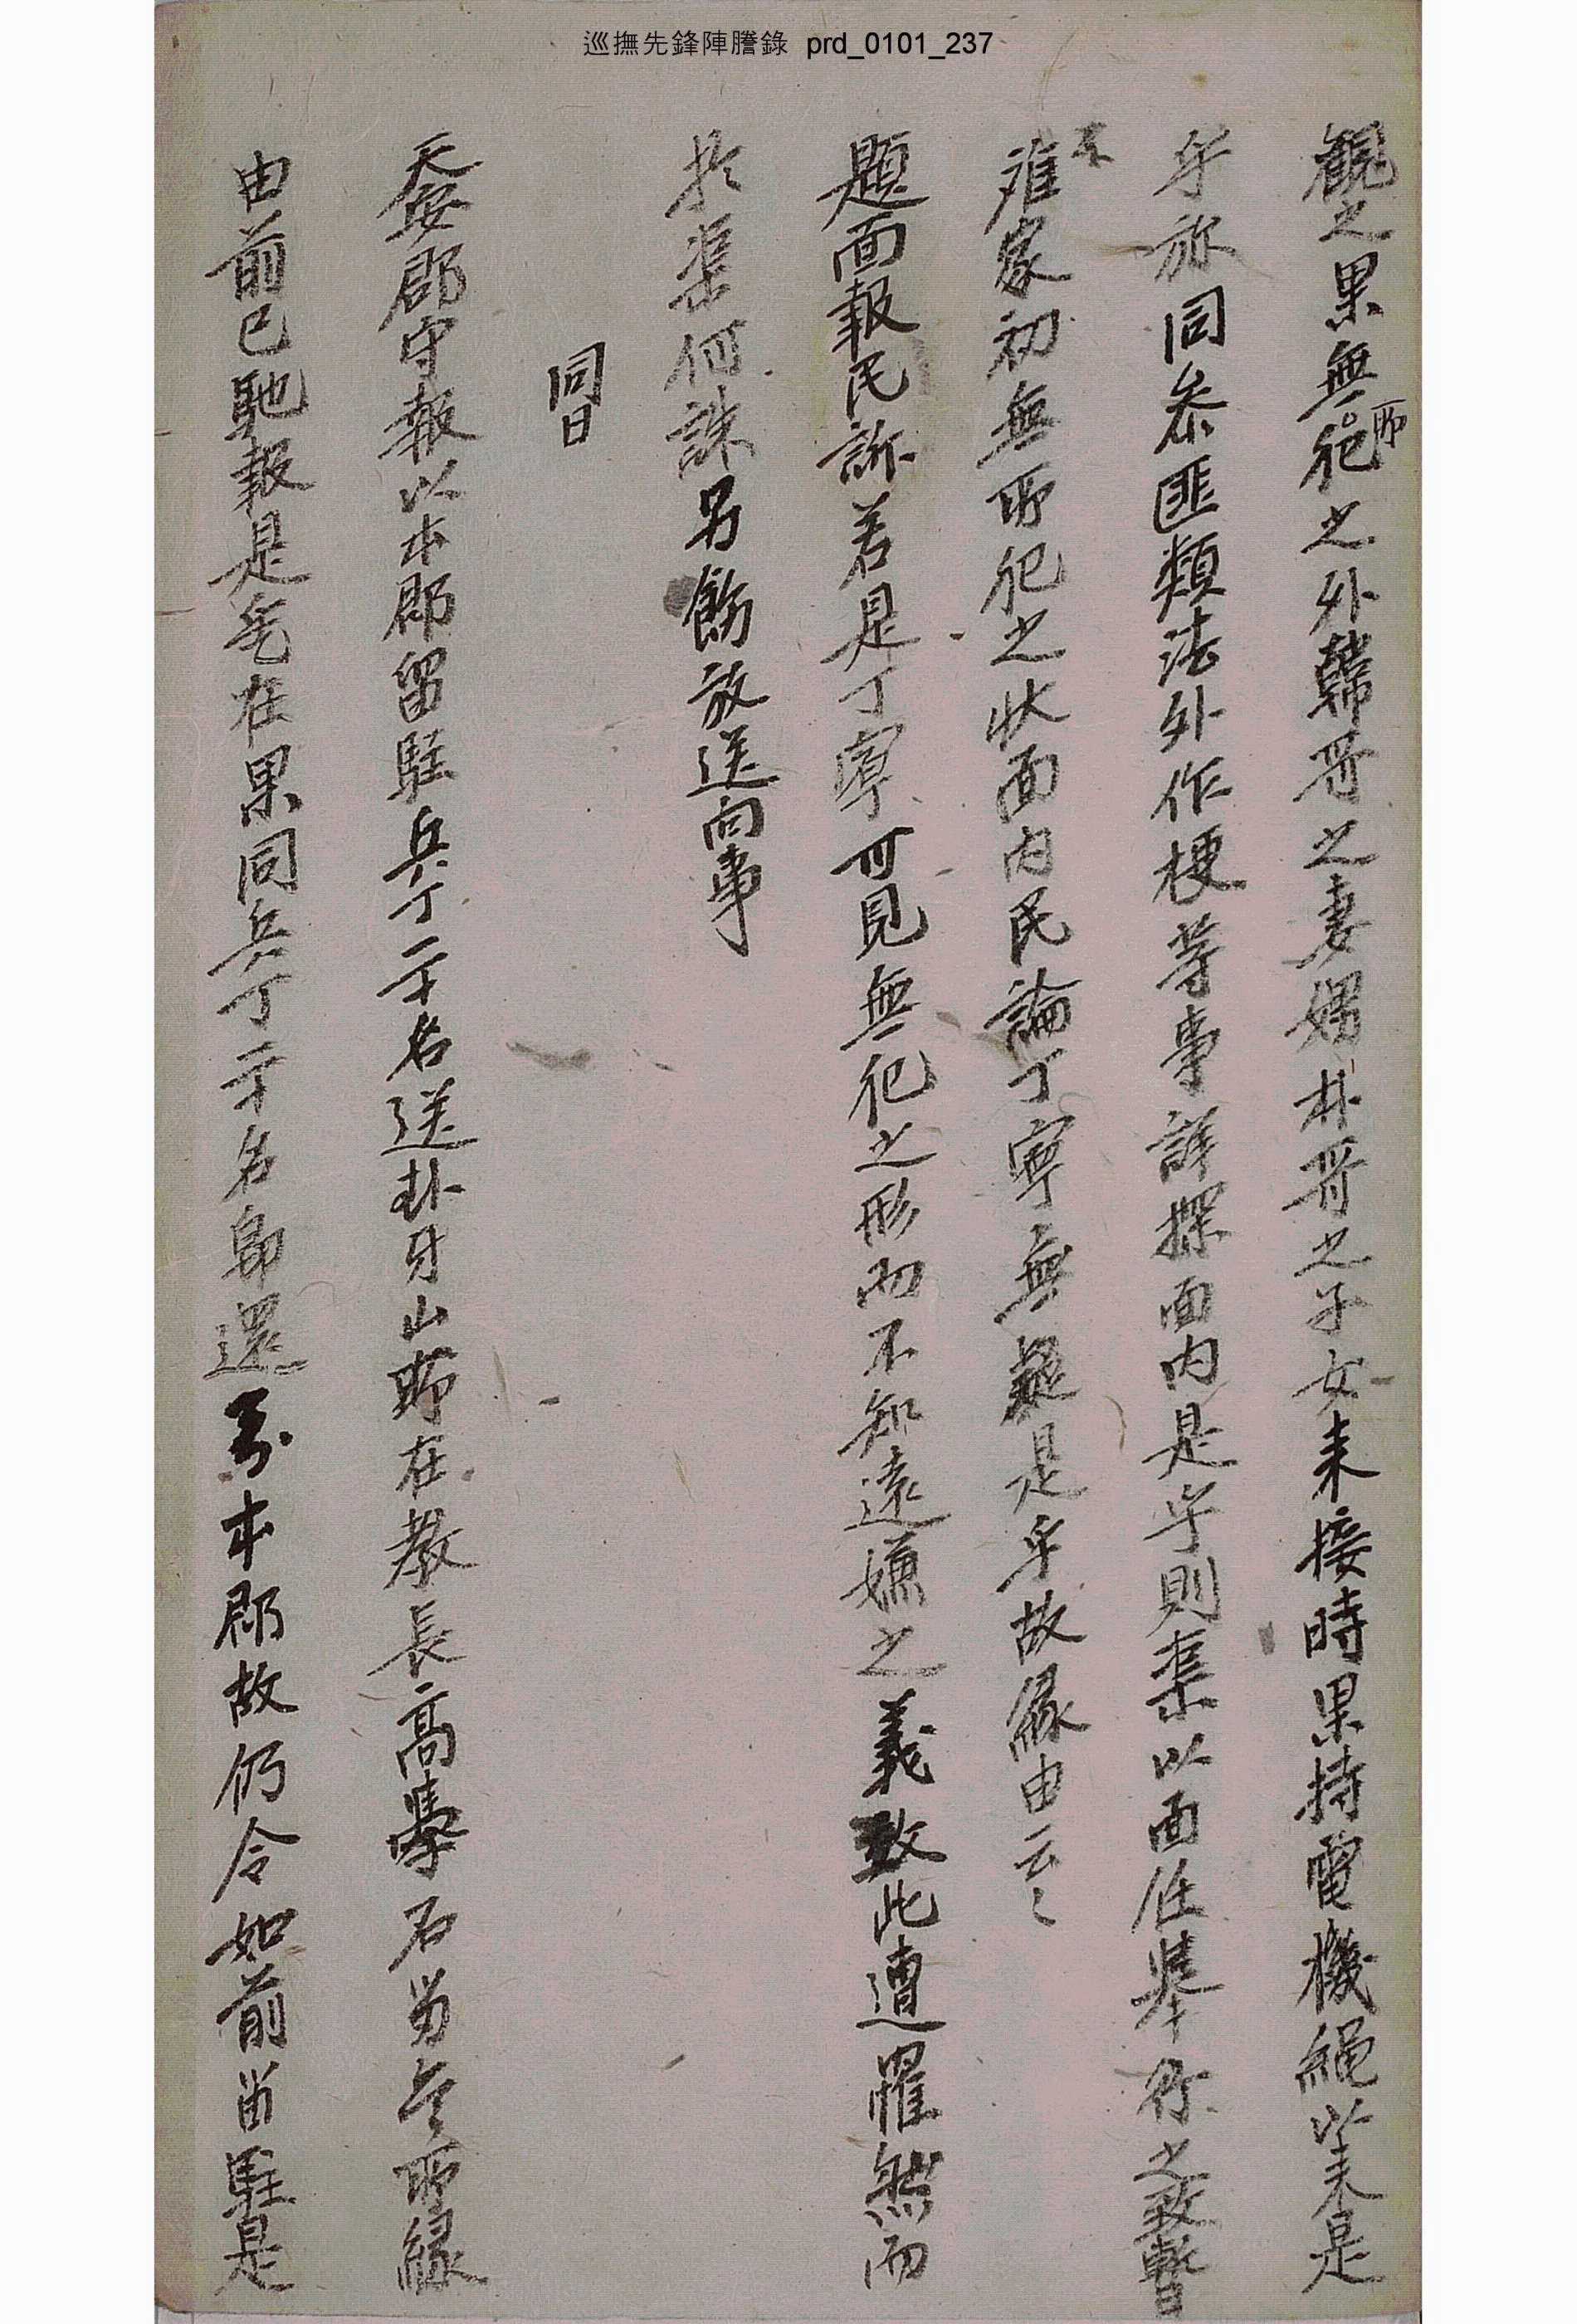 巡撫先鋒陣謄錄 prd_0101_237
觀之果無所犯之外韓哥之妻媤朴哥之子女來接時果持電機繩以來是
乎旀同參匪類法外作梗等事詳探面內是乎則渠以面任擧行之致暫
不
難家初無所犯之狀面內民論丁寧無疑是乎故緣由云〻
題面報民訴若是丁寧可見無犯之形而不知遠嫌之義致此遭罹然而
於渠何誅另飭放送向事
同日
天安郡守報以本郡留駐兵丁二十名送卦牙山郡在敎長高學石另令所緣
由前已馳報是乞在果同兵丁二十名卽還到本郡故仍令如前留駐是